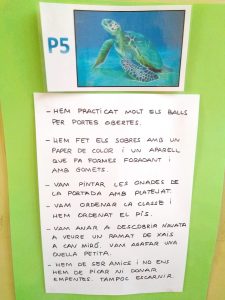 P5
- HEM PRACTICAT MOLT ELS BALLS
PER PORTES OBERTES.
- HEM FET ELS SOBRES AMB UN
PAPER DE COLOR I UN APARELL
QUE FA FORMES FORADANT I
AMB GOMETS.
- VAM PINTAR LES ONADES DE
LA PORTADA AMB PLATEJAT.
- VAM ORDENAR LA CLASSE I
HEM ORDENAT EL PIS.
- VAM ANAR A DESCOBRIR NATURA
A VEURE UN RAMAT DE XAIS
A CAN MIRÓ. VAM AGAFAR UNA
OVELLA PETITA.
- HEM DE SER AMICS I NO ENS
HEM DE PICAR NI DONAR
EMPENTES. TAMPOC ESCARNIR.